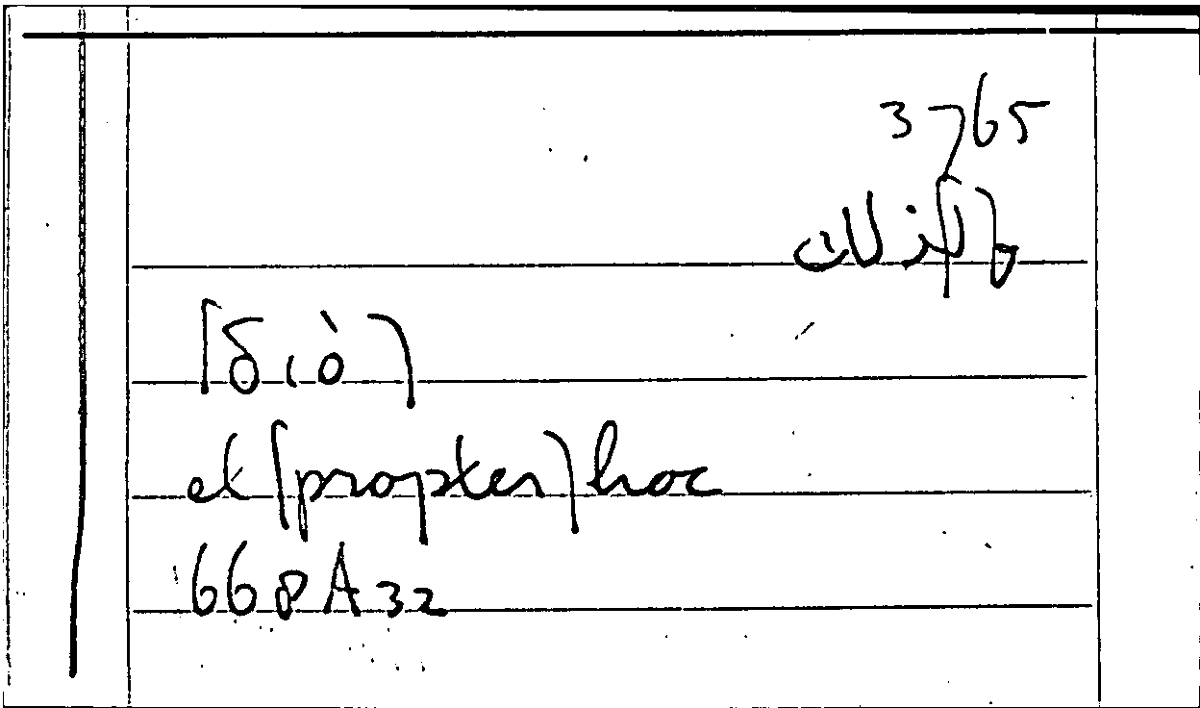 3765
و(ل)ذلك
(διὸ)
et (propter) hoc
668A32